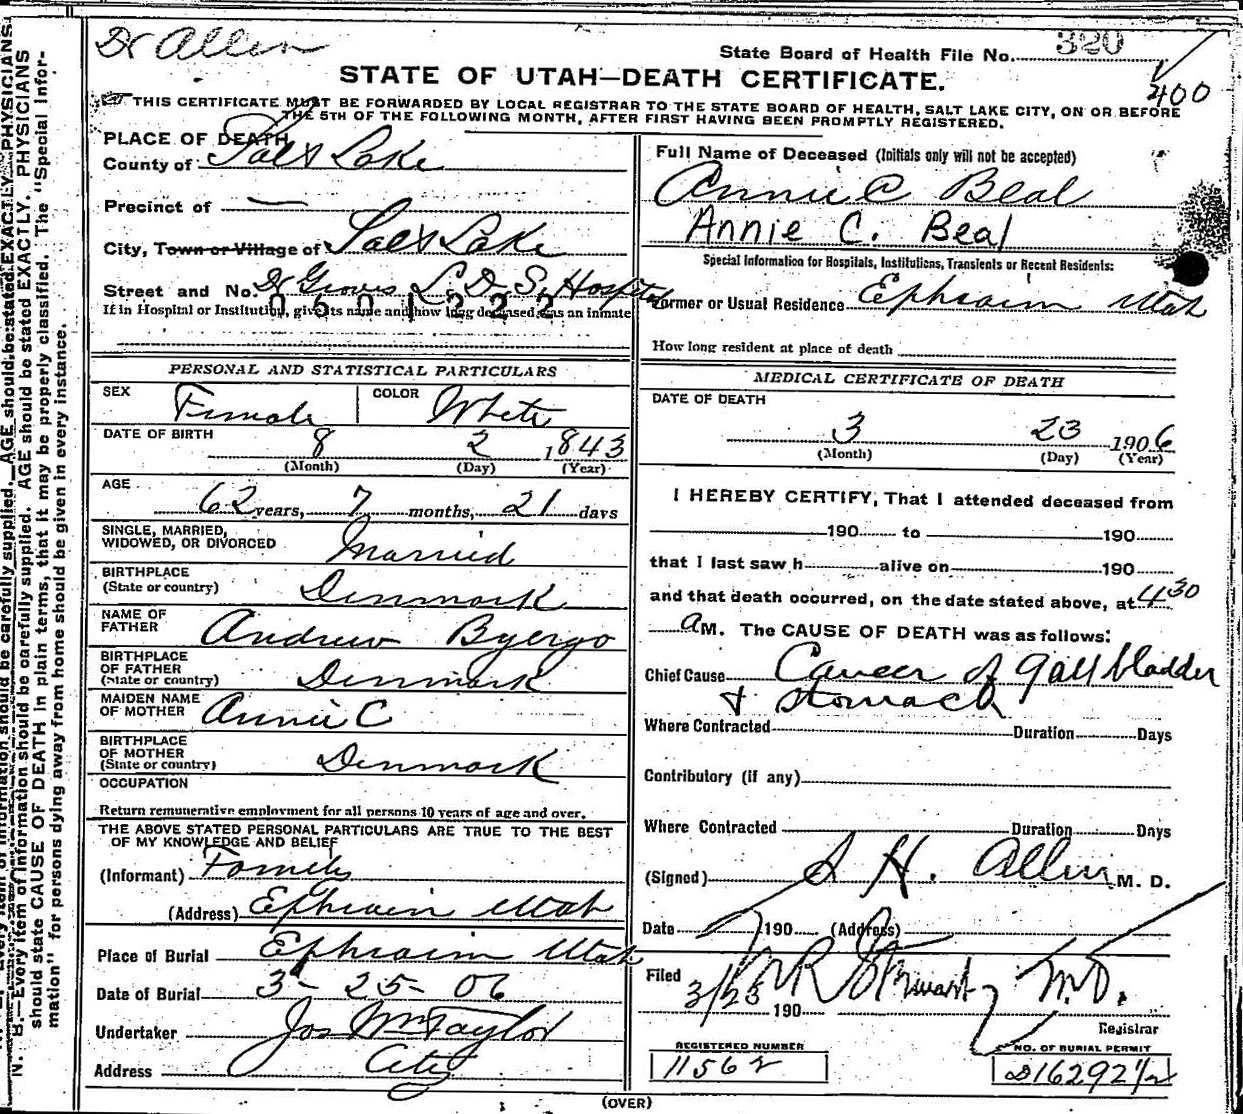 Dr Allen
State Board of Health File No. 320
400
STATE OF UTAH—DEATH CERTIFICATE.
THIS CERTIFICATE MUST BE FORWARDED BY LOCAL REGISTRAR TO THE STATE BOARD OF HEALTH, SALT LAKE CITY, ON OR BEFORE
THE 5TH OF THE FOLLOWING MONTH, AFTER FIRST HAVING BEEN PROMPTLY REGISTERED.
PLACE OF DEATH
County of Salt Lake
Precinct of —
City, Town or Village of Salt Lake
Street and No. Dr Groves L. D. S. Hospital
0601222
If in Hospital or Institution, give its name and how long deceased was an inmate
PERSONAL AND STATISTICAL PARTICULARS
SEX Female COLOR White
DATE OF BIRTH 8 2 1843
(Month) (Day) (Year)
AGE 62 years, 7 months, 21 days
SINGLE, MARRIED,
WIDOWED, OR DIVORCED Married
BIRTHPLACE
(State or country) Denmark
NAME OF
FATHER Andrew Byergo
BIRTHPLACE
OF FATHER
(State or country) Denmark
MAIDEN NAME
OF MOTHER Annie C
BIRTHPLACE
OF MOTHER
(State or country) Denmark
OCCUPATION
Return remunerative employment for all persons 10 years of age and over.
THE ABOVE STATED PERSONAL PARTICULARS ARE TRUE TO THE BEST
OF MY KNOWLEDGE AND BELIEF
(Informant) Family
(Address) Ephraim Utah
Place of Burial Ephraim Utah
Date of Burial 3-25-06
Undertaker Jos Wm Taylor
Address City
Full Name of Deceased (Initials only will not be accepted)
Annie C Beal
Annie C. Beal
Special Information for Hospitals, Institutions, Transients or Recent Residents:
Former or Usual Residence Ephraim Utah
How long resident at place of death
MEDICAL CERTIFICATE OF DEATH
DATE OF DEATH
3 23 1906
(Month) (Day) (Year)
I HEREBY CERTIFY, That I attended deceased from
190 to 190
that I last saw h alive on 190
and that death occurred, on the date stated above, at 4 30
a M. The CAUSE OF DEATH was as follows:
Chief Cause Cancer of gall bladder
+ Stomach
Where Contracted Duration Days
Contributory (if any)
Where Contracted Duration Days
(Signed) S H. Allen M. D.
Date 190 (Address)
Filed 3/23 190 Stewart M.D.
Registrar
REGISTERED NUMBER NO. OF BURIAL PERMIT
11562 D16292 1/2
(OVER)
N. B.—Every item of information should be carefully supplied. AGE should be stated EXACTLY. PHYSICIANS
should state CAUSE OF DEATH in plain terms, that it may be properly classified. The "Special Infor-
mation" for persons dying away from home should be given in every instance.